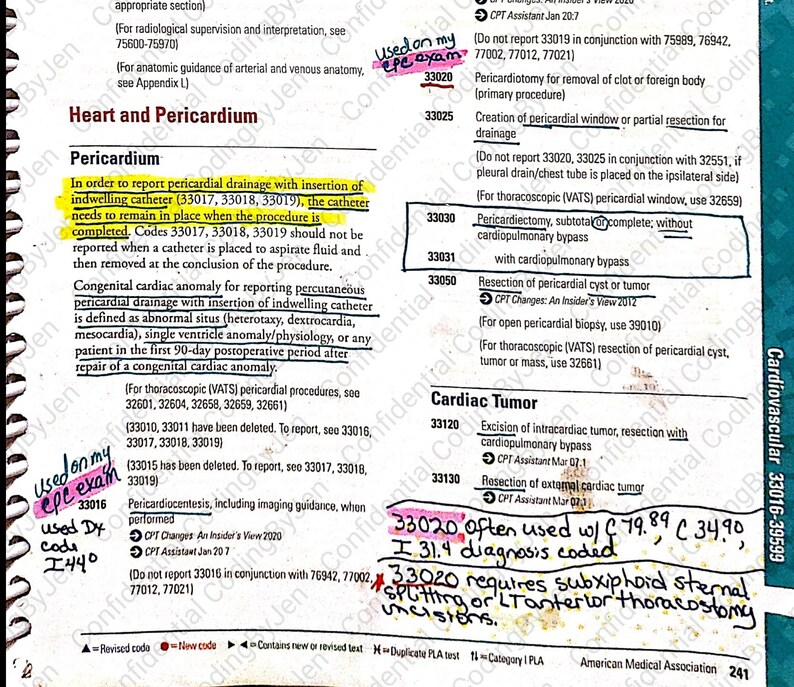 appropriate section)
(For radiological supervision and interpretation, see
75600-75970)
(For anatomic guidance of arterial and venous anatomy,
see Appendix L)
Heart and Pericardium
Pericardium
In order to report pericardial drainage with insertion of
indwelling catheter (33017, 33018, 33019), the catheter
needs to remain in place when the procedure is
completed. Codes 33017, 33018, 33019 should not be
reported when a catheter is placed to aspirate fluid and
then removed at the conclusion of the procedure.
Congenital cardiac anomaly for reporting percutaneous
pericardial drainage with insertion of indwelling catheter
is defined as abnormal situs (heterotaxy, dextrocardia,
mesocardia), single ventricle anomaly/physiology, or any
patient in the first 90-day postoperative period after
repair of a congenital cardiac anomaly.
(For thoracoscopic (VATS) pericardial procedures, see
32601, 32604, 32658, 32659, 32661)
(33010, 33011 have been deleted. To report, see 33016,
33017, 33018, 33019)
(33015 has been deleted. To report, see 33017, 33018,
33019)
used on my
CPC exam
33016 Pericardiocentesis, including imaging guidance, when
performed
CPT Changes: An Insider's View 2020
CPT Assistant Jan 20:7
used Dx
code
I44.0
(Do not report 33016 in conjunction with 76942, 77002,
77012, 77021)
CPT Changes: An Insider's View 2020
CPT Assistant Jan 20:7
(Do not report 33019 in conjunction with 75989, 76942,
77002, 77012, 77021)
used on my
CPC exam
33020 Pericardiotomy for removal of clot or foreign body
(primary procedure)
33025 Creation of pericardial window or partial resection for
drainage
(Do not report 33020, 33025 in conjunction with 32551, if
pleural drain/chest tube is placed on the ipsilateral side)
(For thoracoscopic (VATS) pericardial window, use 32659)
33030 Pericardiectomy, subtotal or complete; without
cardiopulmonary bypass
33031 with cardiopulmonary bypass
33050 Resection of pericardial cyst or tumor
CPT Changes: An Insider's View 2012
(For open pericardial biopsy, use 39010)
(For thoracoscopic (VATS) resection of pericardial cyst,
tumor or mass, use 32661)
Cardiac Tumor
33120 Excision of intracardiac tumor, resection with
cardiopulmonary bypass
CPT Assistant Mar 07:1
33130 Resection of external cardiac tumor
CPT Assistant Mar 07:1
33020 often used w/ C 79.89, C 34.90,
I 31.4 diagnosis coded
33020 requires subxiphoid sternal
splitting or LT anterior thoracostomy
incisions.
▲=Revised code ●=New code ►◄=Contains new or revised text Ж=Duplicate PLA test ↑↓=Category I PLA
American Medical Association 241
Cardiovascular 33016-39599
Confidential CodingByJen